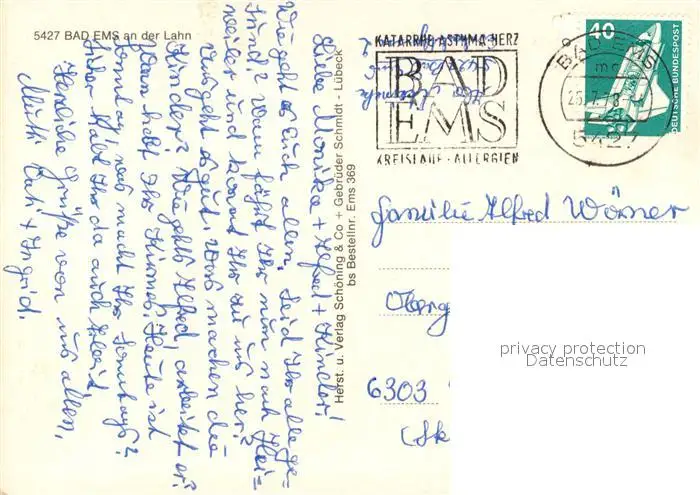 5427 BAD EMS an der Lahn
Liebe Monika + Alfred + Kinder!
Wie geht es Euch allen. Seid Ihr alle ge-
sund? Wann fährt Ihr nun nach
weiler und kommt Ihr zu uns her?
Uns geht es gut. Was machen die
Kinder? Wie gehts Alfred, arbeitet er?
Wann habt Ihr Kirmes. Heute ist
Sonntag, was macht Ihr Sonntags?
Ihr da auch
Herzliche Grüße von uns allen,
Mutti + Ingrid.
Herst. u. Verlag Schöning & Co + Gebrüder Schmidt - Lübeck
bs Bestellnr. Ems 369
KATARRHE ASTHMA HERZ
BAD
EMS
KREISLAUF · ALLERGIEN
BAD EMS
mc
5427
40
DEUTSCHE BUNDESPOST
Familie Alfred Wörner
6303
privacy protection
Datenschutz